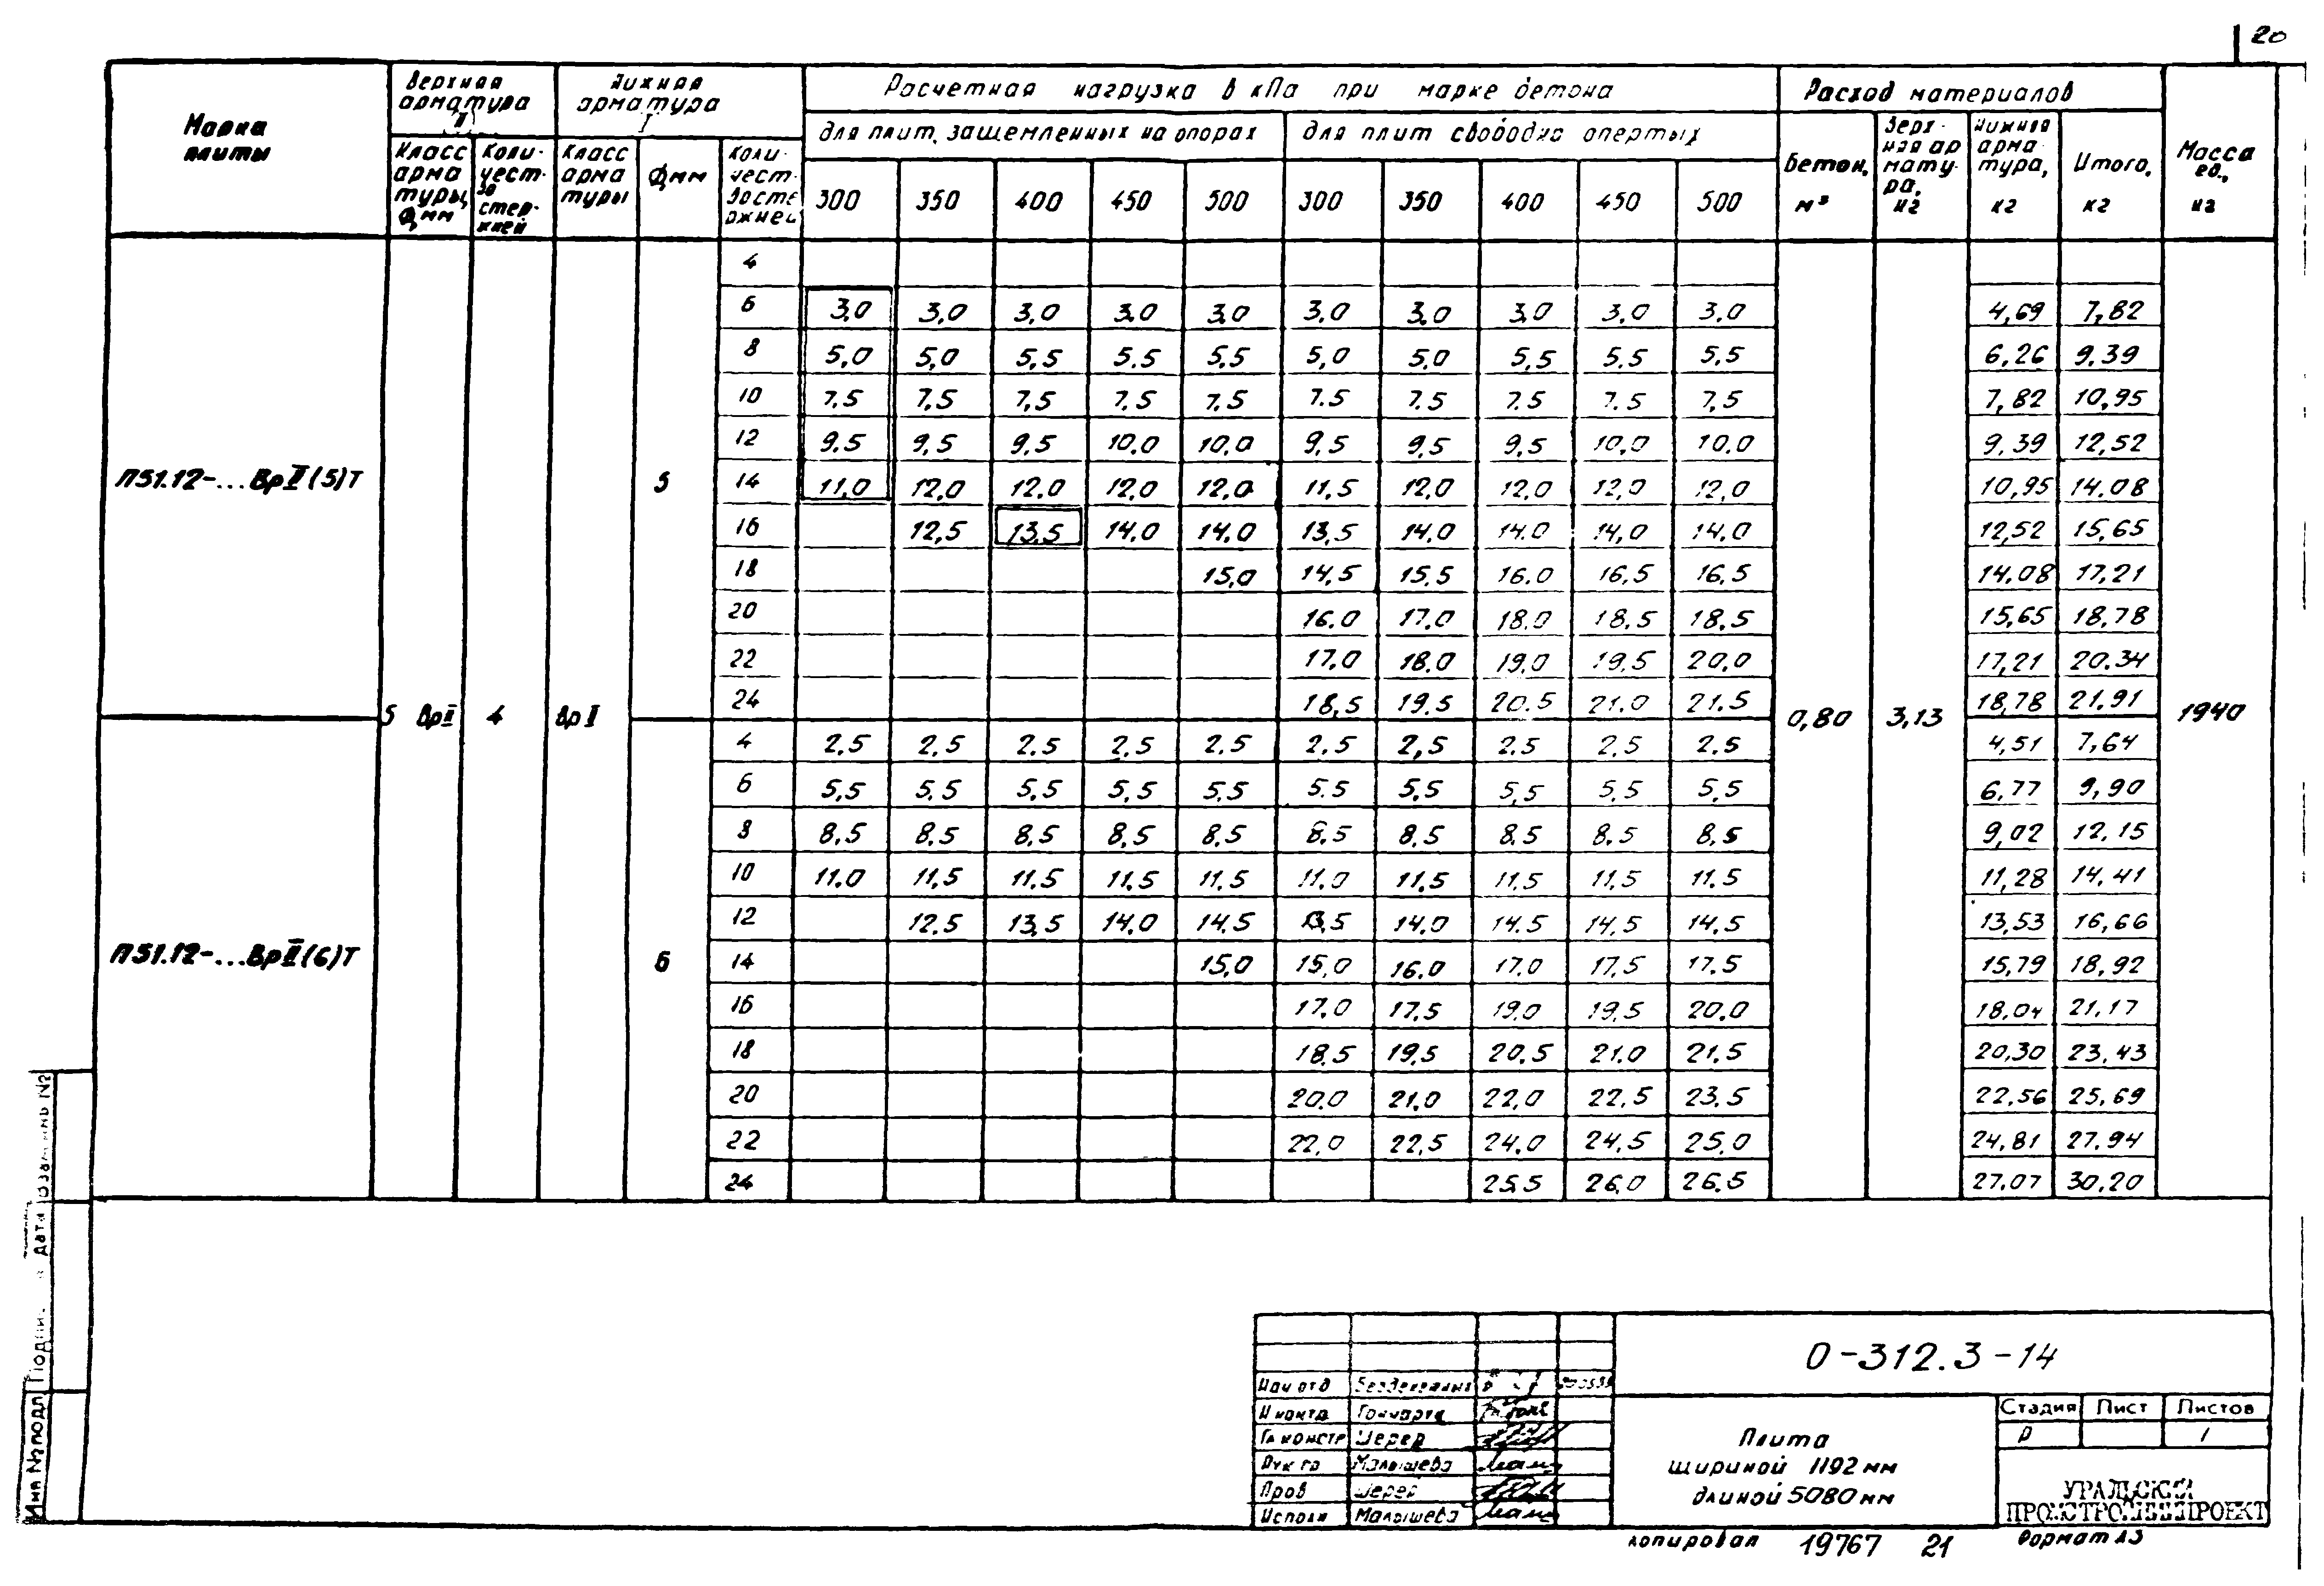 20
Марка плиты
Верхняя арматура II
Нижняя арматура I
Расчетная нагрузка в кПа при марке бетона
Расход материалов
Масса ед., кг
для плит, защемленных на опорах
для плит свободно опертых
Класс арматуры, Ф, мм
Количество стержней
Класс арматуры
Ф, мм
Количество стержней
300 350 400 450 500 300 350 400 450 500
Бетон, м³
Верхняя арматура, кг
Нижняя арматура, кг
Итого, кг
4
6 3,0 3,0 3,0 3,0 3,0 3,0 3,0 3,0 3,0 3,0 4,69 7,82
8 5,0 5,0 5,5 5,5 5,5 5,0 5,0 5,5 5,5 5,5 6,26 9,39
10 7,5 7,5 7,5 7,5 7,5 7,5 7,5 7,5 7,5 7,5 7,82 10,95
12 9,5 9,5 9,5 10,0 10,0 9,5 9,5 9,5 10,0 10,0 9,39 12,52
П51.12-...ВрII(5)Т 5 14 11,0 12,0 12,0 12,0 12,0 11,5 12,0 12,0 12,0 12,0 10,95 14,08
16 12,5 13,5 14,0 14,0 13,5 14,0 14,0 14,0 14,0 12,52 15,65
18 15,0 14,5 15,5 16,0 16,5 16,5 14,08 17,21
20 16,0 17,0 18,0 18,5 18,5 15,65 18,78
22 17,0 18,0 19,0 19,5 20,0 17,21 20,34
24 18,5 19,5 20,5 21,0 21,5 18,78 21,91
5 ВрII 4 ВрI 0,80 3,13 1940
4 2,5 2,5 2,5 2,5 2,5 2,5 2,5 2,5 2,5 2,5 4,51 7,64
6 5,5 5,5 5,5 5,5 5,5 5,5 5,5 5,5 5,5 5,5 6,77 9,90
8 8,5 8,5 8,5 8,5 8,5 8,5 8,5 8,5 8,5 8,5 9,02 12,15
10 11,0 11,5 11,5 11,5 11,5 11,0 11,5 11,5 11,5 11,5 11,28 14,41
12 12,5 13,5 14,0 14,5 13,5 14,0 14,5 14,5 14,5 13,53 16,66
П51.12-...ВрII(6)Т 6 14 15,0 15,0 16,0 17,0 17,5 17,5 15,79 18,92
16 17,0 17,5 19,0 19,5 20,0 18,04 21,17
18 18,5 19,5 20,5 21,0 21,5 20,30 23,43
20 20,0 21,0 22,0 22,5 23,5 22,56 25,69
22 22,0 22,5 24,0 24,5 25,0 24,81 27,94
24 25,5 26,0 26,5 27,07 30,20
Инв №подл Подпись и дата Взам инв №
О-312.3-14
Нач отд
Н контр Гончарта
Гл констр Шерер
Рук гр Малышева
Пров Шерер
Исполн Малышева
Плита
шириной 1192 мм
длиной 5080 мм
Стадия Лист Листов
Р 1
УРАЛЬСКИЙ
ПРОМСТРОЙНИИПРОЕКТ
копировал 19767 21 Формат А3